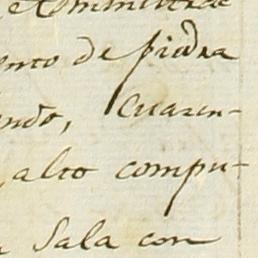 ento de piedra
ndo, Cuaren-
alto compu-
Sala con